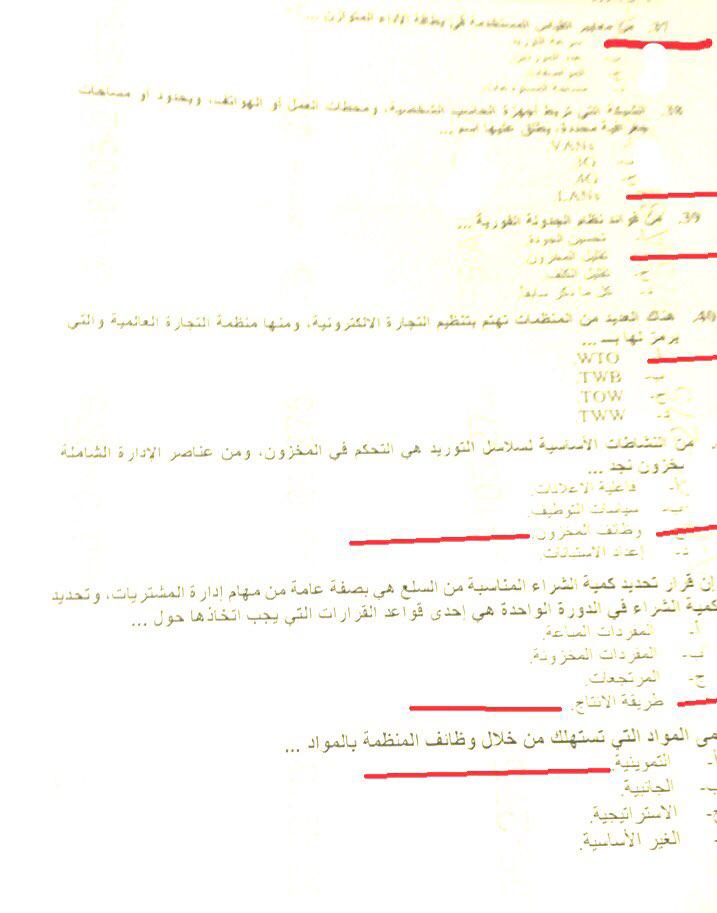 37. من معايير القياس المستخدمة في بطاقة الأداء المتوازن ...
سرعة التوريد
ب- عدد الموردين
ج-
د-
38. الشبكة التي تربط أجهزة الحاسب الشخصية، ومحطات العمل أو الهواتف، وبحدود أو مساحات
جغرافية محددة، يطلق عليها اسم ...
VANs
ب- 3G
ج- 4G
LANs
39. من فوائد نظام الجدولة الفورية ...
أ- تحسين الجودة.
تقليل المخزون.
ج- تقليل التكلف.
د- كل ما ذكر سابقاً.
40. هناك العديد من المنظمات تهتم بتنظيم التجارة الالكترونية، ومنها منظمة التجارة العالمية والتي
يرمز لها بـ ...
أ- WTO
ب- TWB.
ج- TOW.
د- TWW.
. من النشاطات الأساسية لسلاسل التوريد هي التحكم في المخزون، ومن عناصر الإدارة الشاملة
خزون نجد ...
أ- فاعلية الاعلانات.
ب- سياسات التوظيف.
ج- وظائف المخزون.
د- إعداد الاستبانات.
إن قرار تحديد كمية الشراء المناسبة من السلع هي بصفة عامة من مهام إدارة المشتريات، وتحديد
كمية الشراء في الدورة الواحدة هي إحدى قواعد القرارات التي يجب اتخاذها حول ...
أ- المفردات المباعة.
ب- المفردات المخزونة.
ج- المرتجعات.
طريقة الانتاج.
مى المواد التي تستهلك من خلال وظائف المنظمة بالمواد ...
أ- التموينية.
ب- الجانبية.
ج- الاستراتيجية.
- الغير الأساسية.